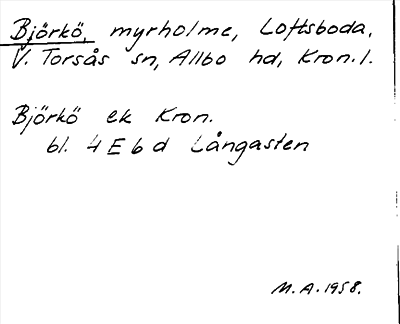 Björkö, myrholme, Loftsboda,
V. Torsås sn, Allbo hd, Kron. l.
Björkö ek Kron.
bl. 4 E 6 d Långasten
M. A. 1958.